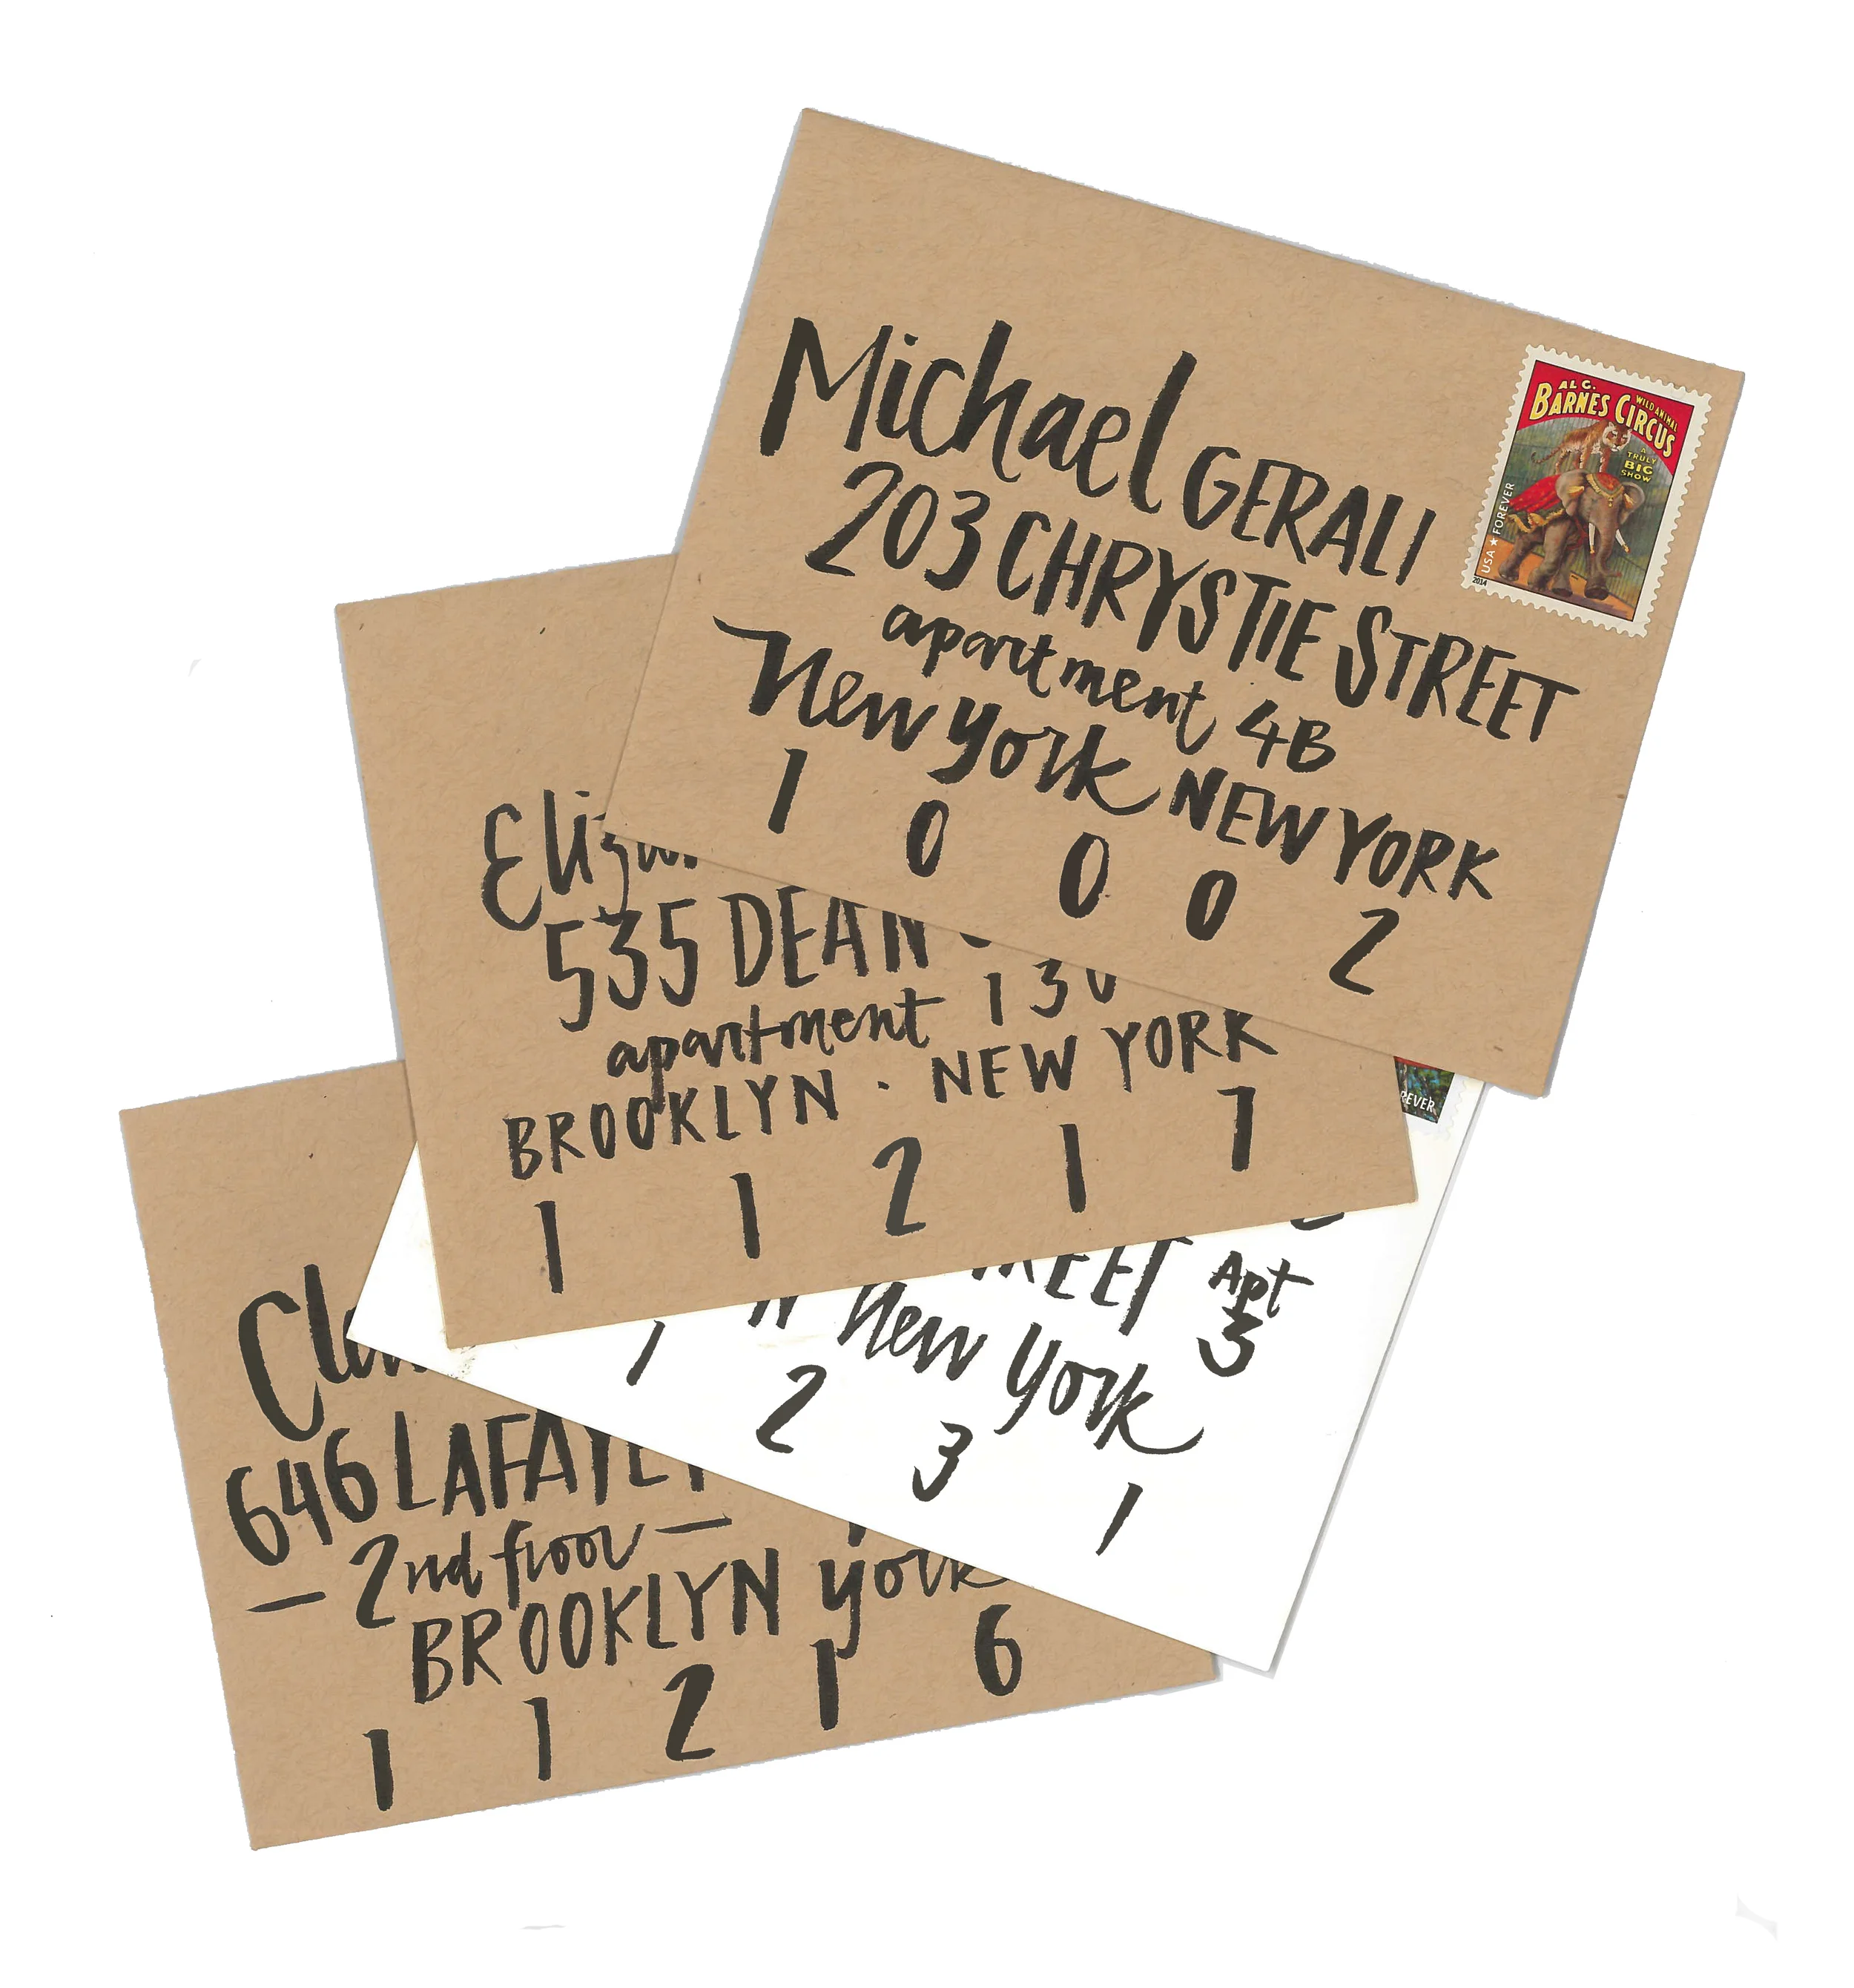 Michael GERALI
203 CHRYSTIE STREET
apartment 4B
New York NEW YORK
1 0 0 0 2
AL G.
BARNES CIRCUS
WILD ANIMAL
A
TRULY
BIG
SHOW
USA ★ FOREVER
2014
535 DEAN
apartment 130
BROOKLYN · NEW YORK
1 1 2 1 7
Apt
3
New York
1 2 3 1
646
2nd floor
BROOKLYN york
1 1 2 1 6